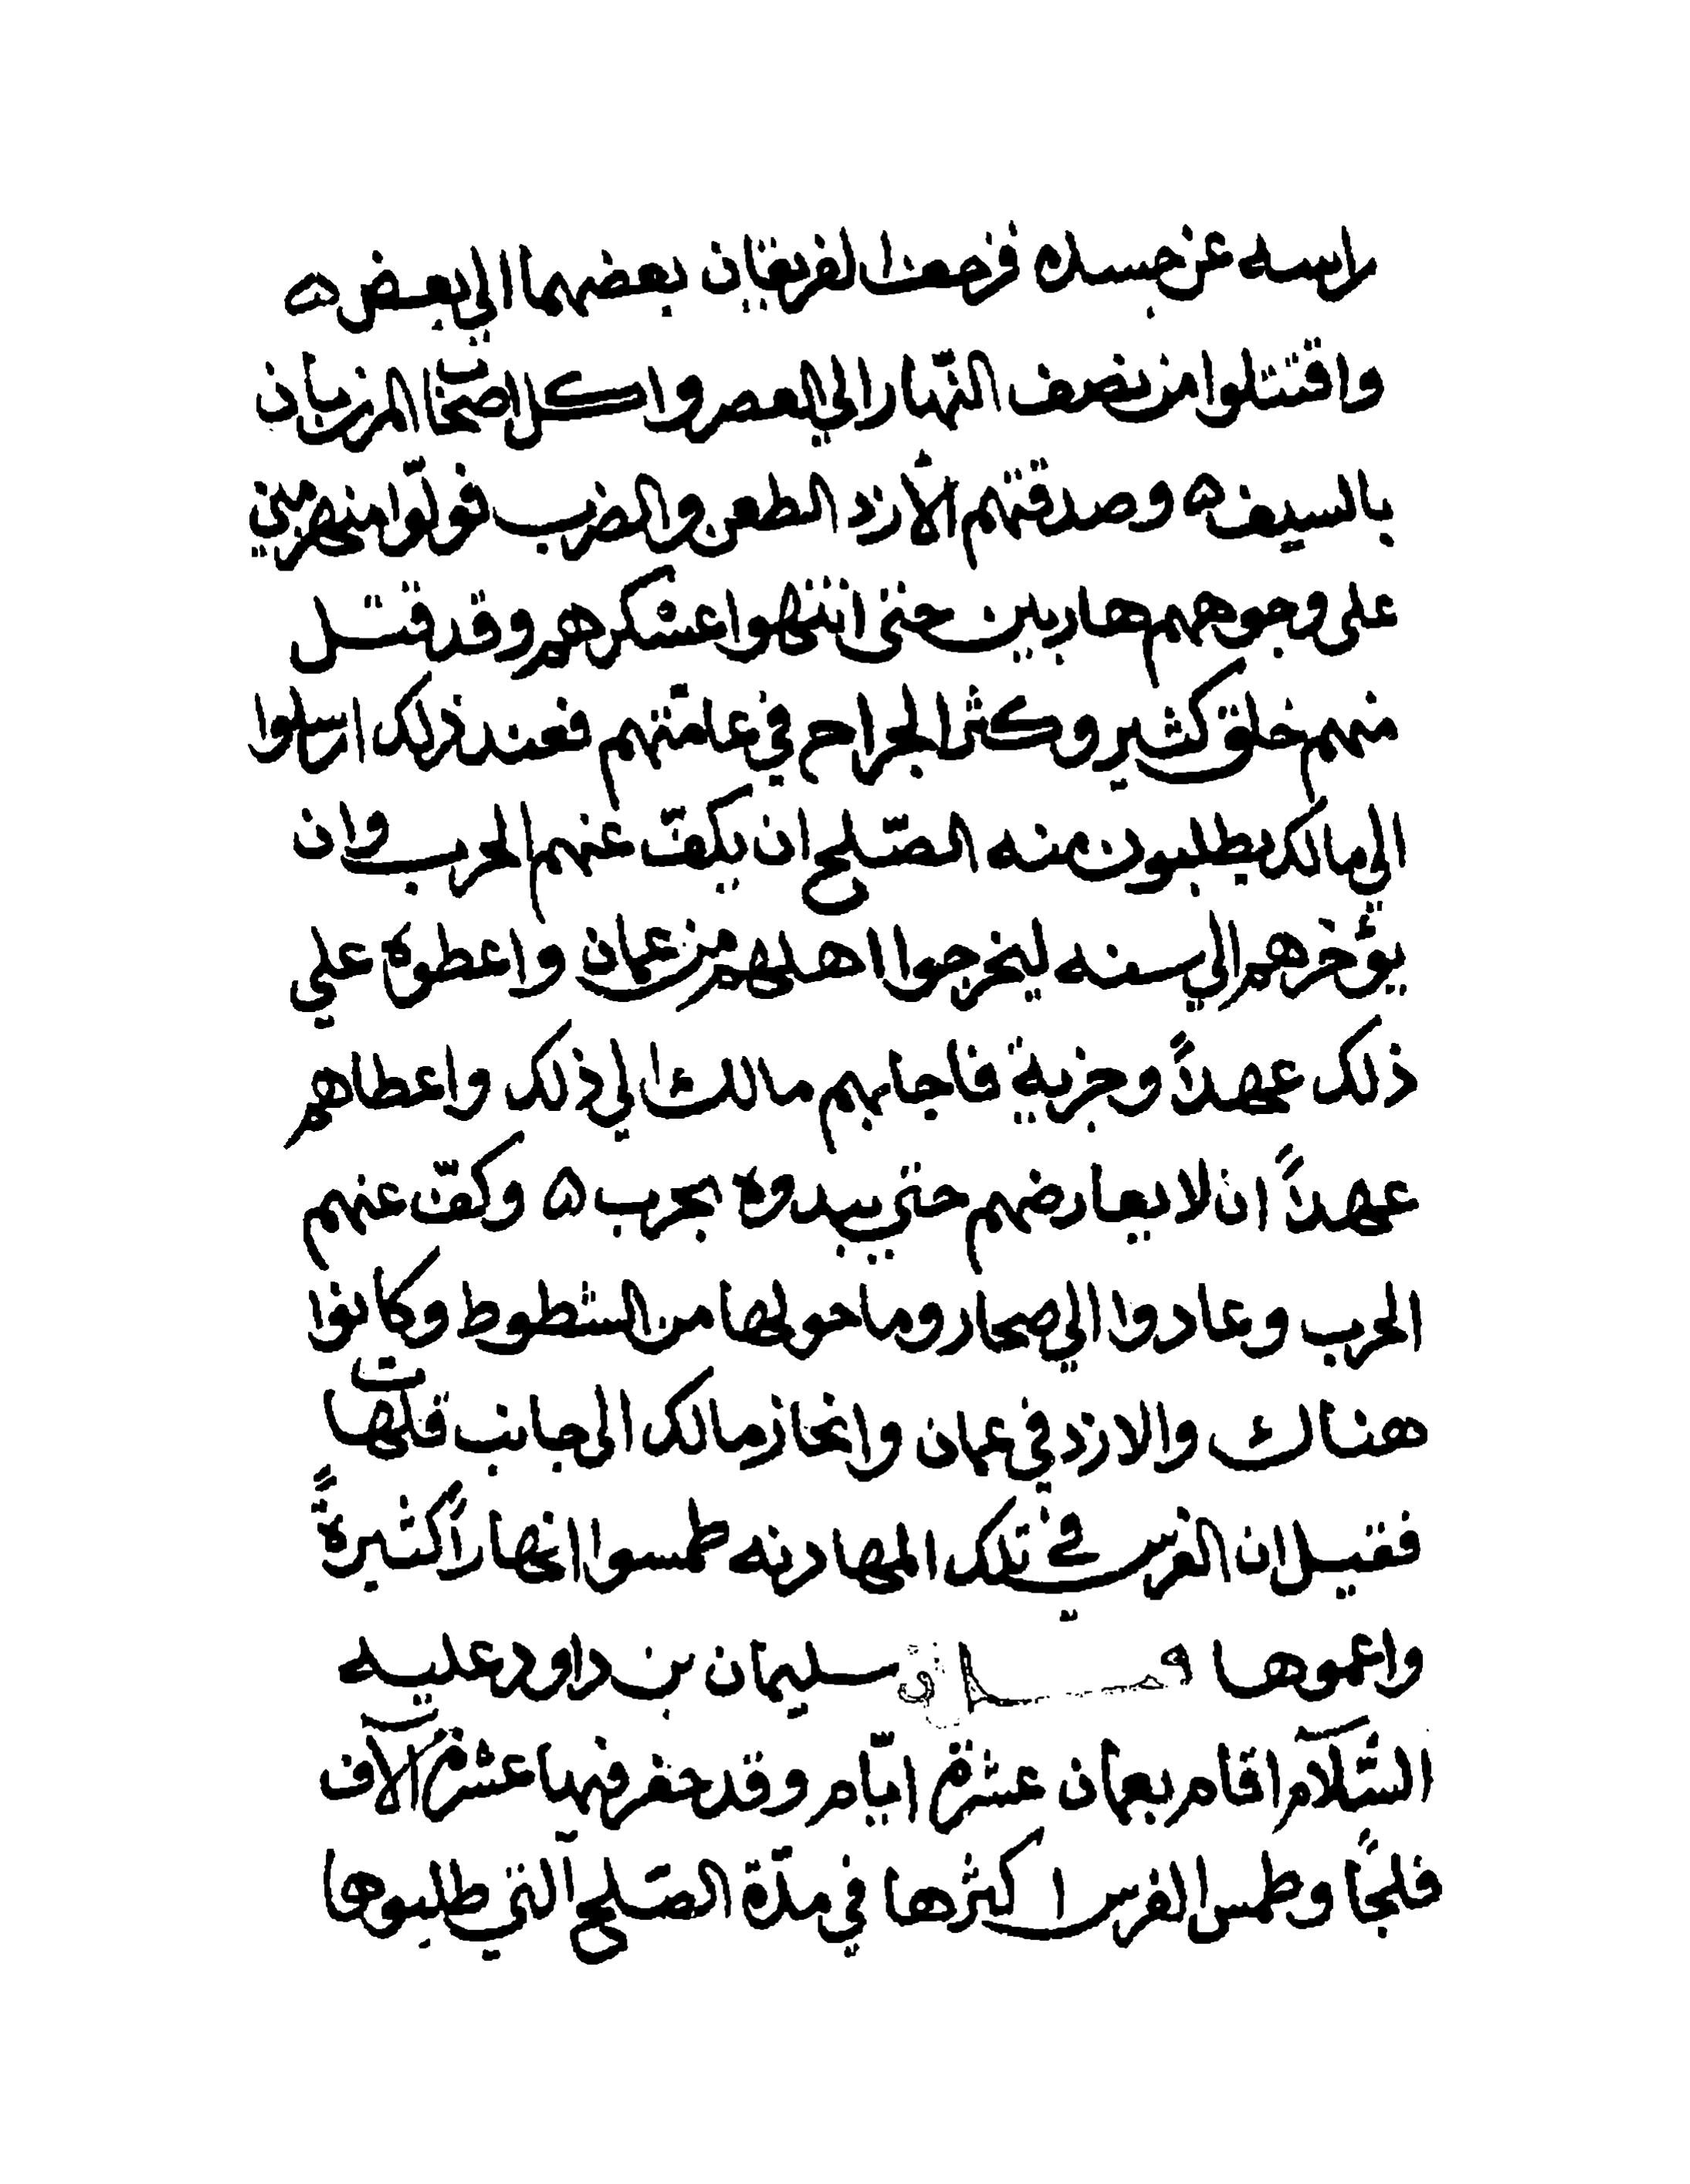 راسه عن جسده فزحفت الفريقان بعضهما الي بعض ه
واقتتلوا من نصف النّهار الي العصر واكل اصحاب المرزبان
بالسيف ه وصدقتهم الأزد الطعن والضرب فولّوا منهزمين
على وجوههم هاربين حتى انتهوا عسكرهم وقد قتل
منهم خلق كثير وكثر الجراح في عامّتهم فعند ذلك ارسلوا
الي مالك يطلبون منه الصّلح ان يكفّ عنهم الحرب وان
يؤخرهم الي سنه ليخرجوا اهلهم من عمان واعطوه علي
ذلك عهداً وجزية فاجابهم مالك الي ذلك واعطاهم
عهداً ان لا يعارضهم حتي يبدوه بحرب ه وكفّ عنهم
الحرب وعادوا الي صحار وما حولها من الشطوط وكانوا
هناك والازد في عمان وانحاز مالك الى جانب قلهات
فقيل ان الفرس في تلك المهادنه طمسوا انهاراً كثيرةً
واعموها سليمان بن داود عليه
السّلام اقام بعمان عشرة ايّام وقد حفر فيها عشرة آلاف
فلجاً وطمس الفرس اكثرها في مدّة الصّلح التي طلبوها